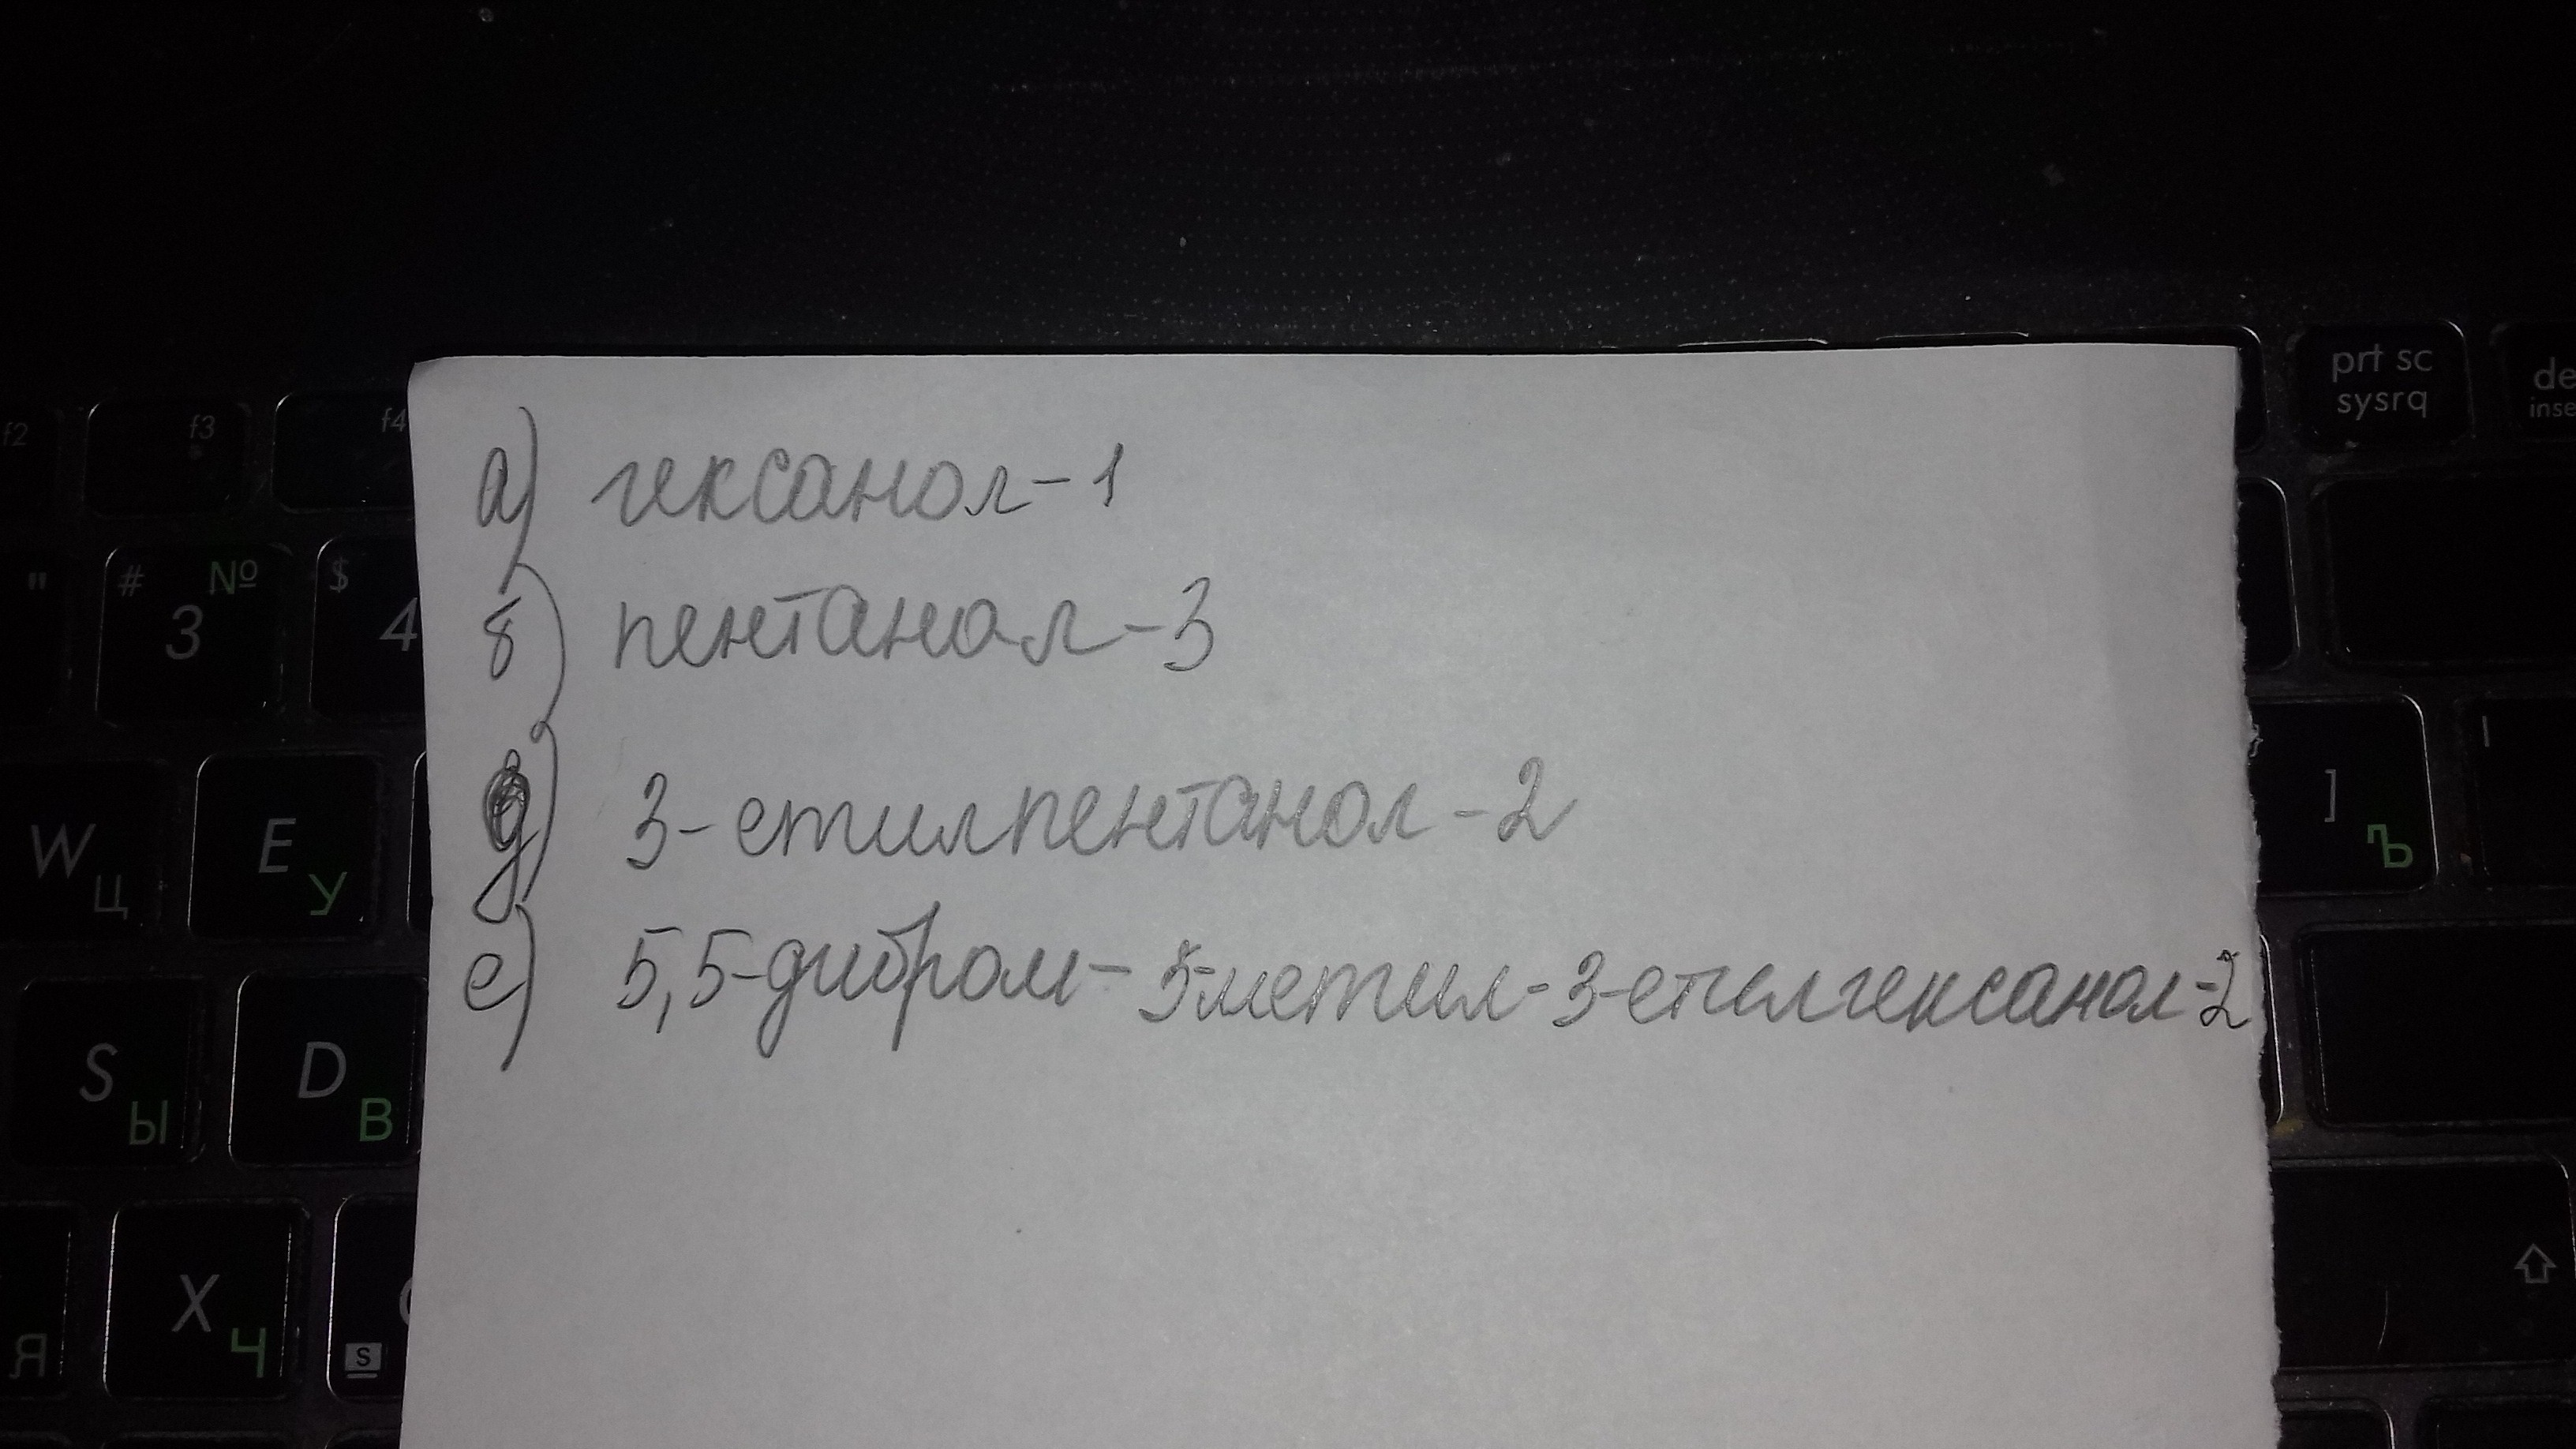 f2 f3 f4 prt sc sysrq
" # 3 № $ 4
W Ц E У ] Ъ
S Ы D В
Я X Ч S
а) гексанол-1
б) пентанол-3
д) 3-етилпентанол-2
е) 5,5-дибром-5-метил-3-етилгексанол-2